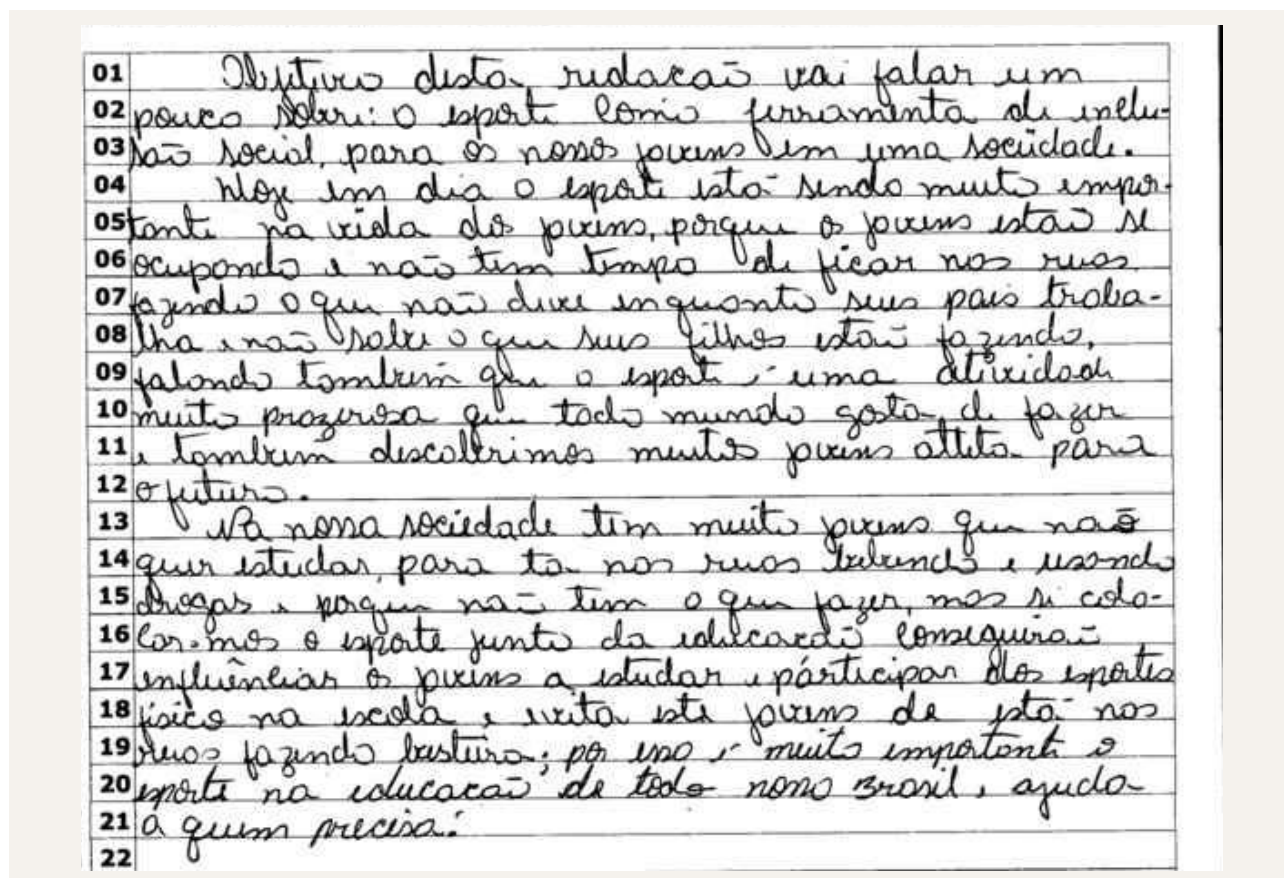 01 Objetivo desta, redacaõ vai falar um
02 pouco sobre: o esporte como ferramenta de inclu-
03 saõ social, para os nossos jovens em uma sociedade.
04 Hoje em dia o esporte está sendo muito impor-
05 tante na vida dos jovens, porque os jovens estaõ se
06 ocupando e naõ tem tempo de ficar nas ruas
07 fazendo o que naõ deve enquanto seus pais traba-
08 lha e naõ sabe o que seus filhos estaõ fazendo,
09 falando também que o esporte é uma atividade
10 muito prazerosa que todo mundo gosta de fazer
11 e também descobrimos muitos jovens atleta para
12 o futuro.
13 Na nossa sociedade tem muito jovens que naõ
14 quer estudar, para ta nas ruas bebendo e usando
15 drogas e porque naõ tem o que fazer, mas si colo-
16 car-mos o esporte junto da educacaõ conseguiraõ
17 influênciar os jovens a estudar e párticipar dos esportes
18 fisico na escola e evita este jovens de está nas
19 ruas fazendo besteira; por isso é muito importante o
20 esporte na educacaõ de todo nosso Brasil, ajuda
21 a quem precisa.
22